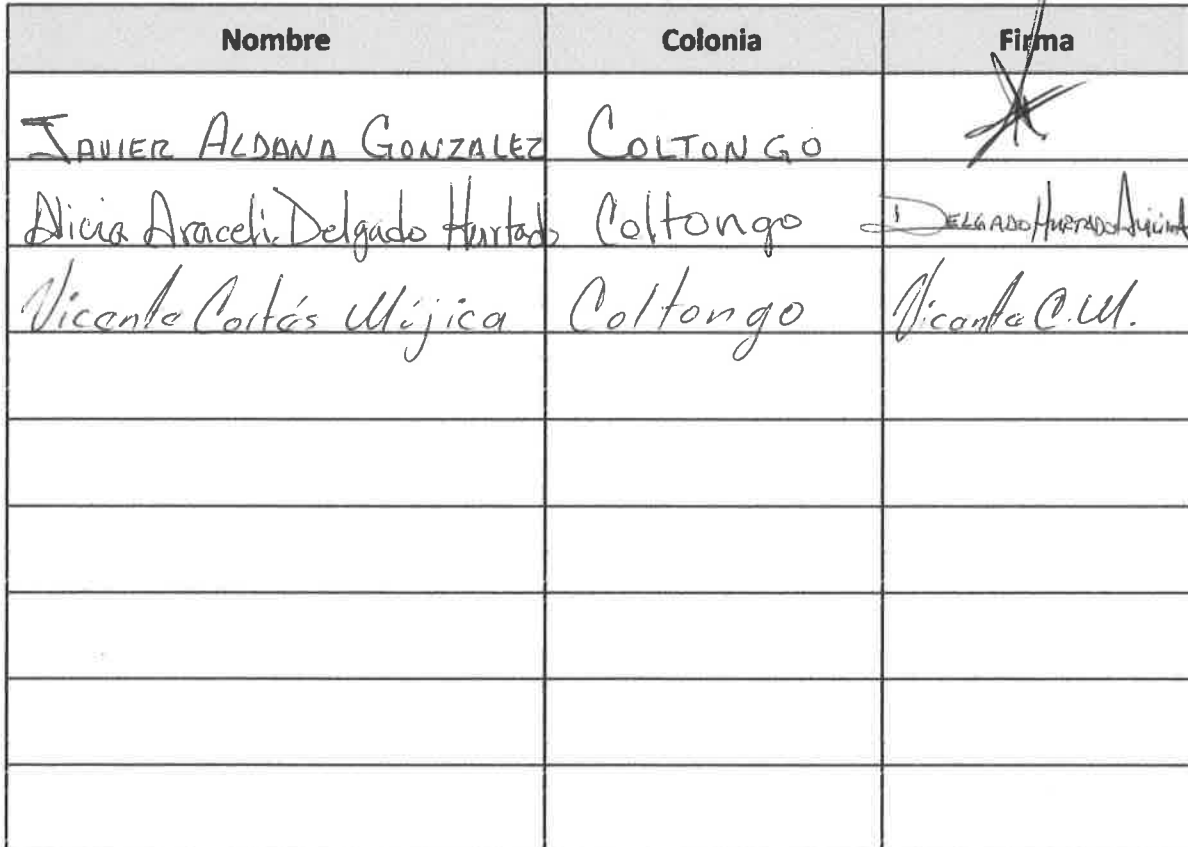 Nombre Colonia Firma
JAVIER ALDANA GONZALEZ COLTONGO
Alicia Araceli Delgado Hurtado Coltongo DELGADO HURTADO
Vicente Cortés Mújica Coltongo Vicente C.M.